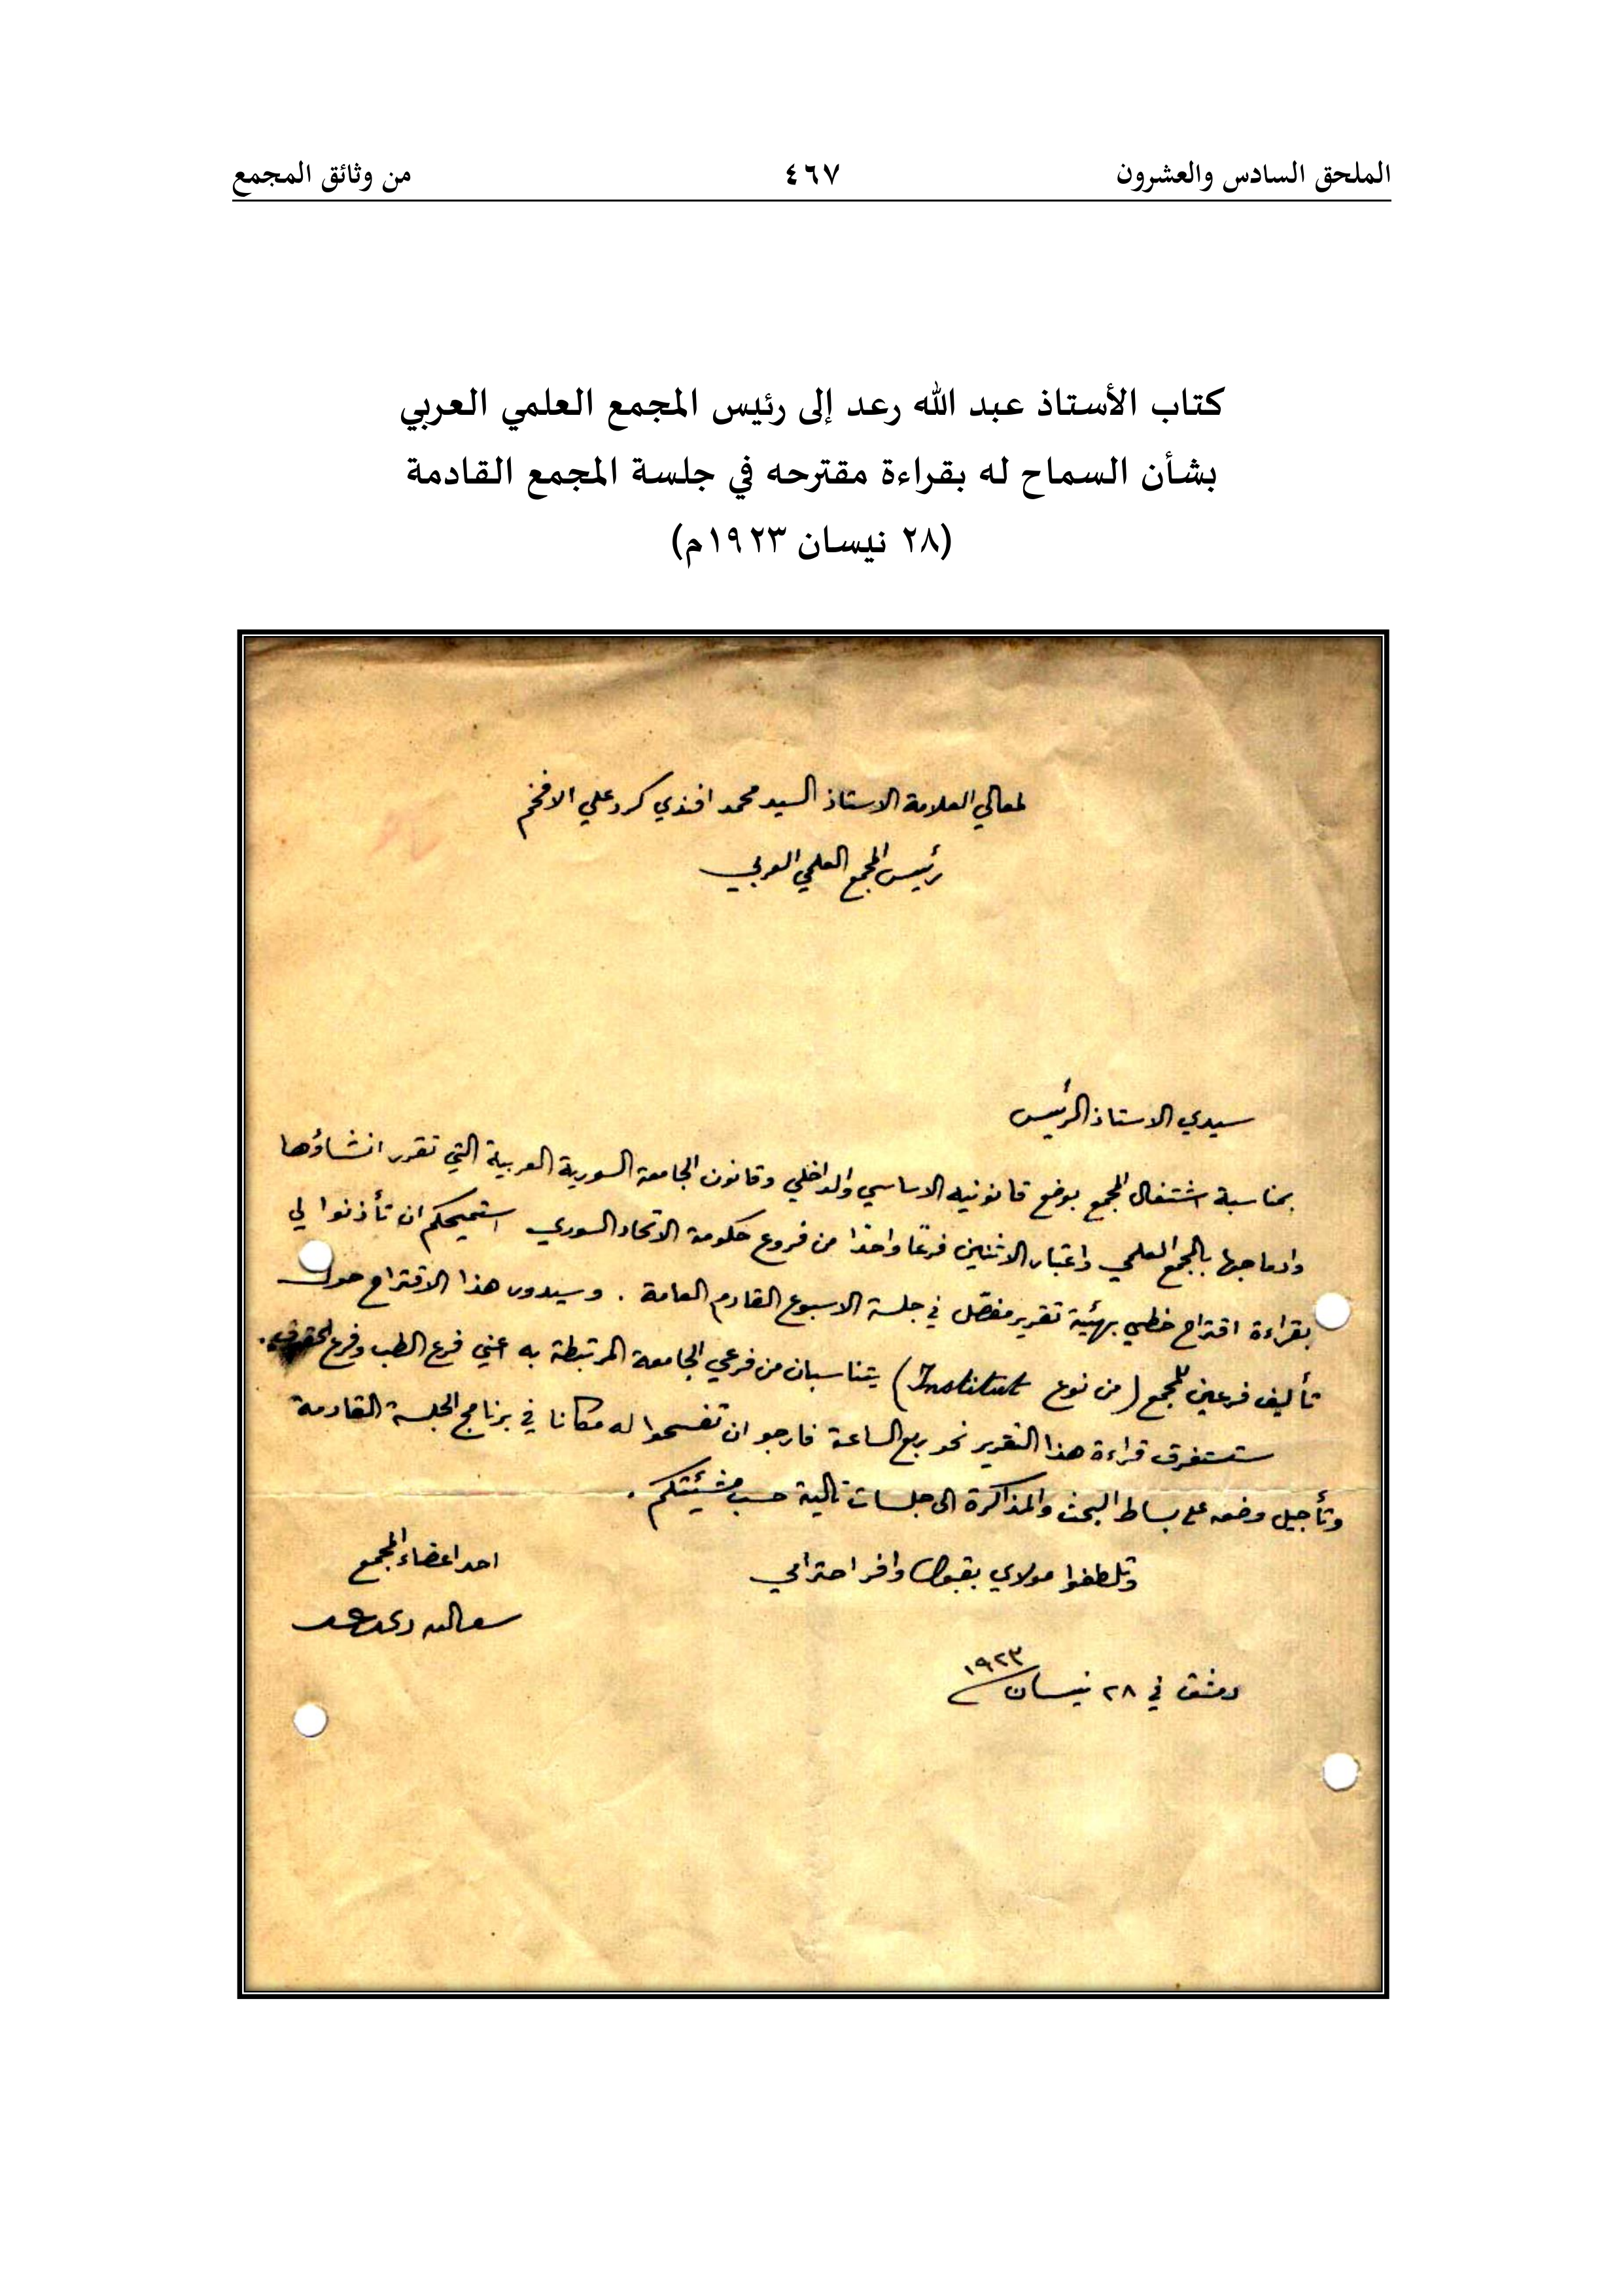 الملحق السادس والعشرون ٤٦٧ من وثائق المجمع
كتاب الأستاذ عبد الله رعد إلى رئيس المجمع العلمي العربي
بشأن السماح له بقراءة مقترحه في جلسة المجمع القادمة
(٢٨ نيسان ١٩٢٣م)
لمعالي العلامة الاستاذ السيد محمد افندي كرد علي الافخم
رئيس المجمع العلمي العربي
سيدي الاستاذ الرئيس
بمناسبة اشتغال المجمع بوضع قانونيه الاساسي والداخلي وقانون الجامعة السورية العربية التي تقرر انشاؤها
وادماجها بالمجمع العلمي واعتبار الاثنين فرعًا واحدًا من فروع حكومة الاتحاد السوري استميحكم ان تأذنوا لي
بقراءة اقتراح خطي بهيئة تقرير مفصّل في جلسة الاسبوع القادم العامة . وسيدور هذا الاقتراح حول
تأليف فرعين للمجمع (من نوع Institut) يتناسبان من فرعي الجامعة المرتبطة به اعني فرع الطب وفرع الحقوق.
ستستغرق قراءة هذا التقرير نحو ربع الساعة فارجو ان تفسحوا له مكانا في برنامج الجلسة القادمة
وتأجيل وضعه على بساط البحث والمذاكرة الى جلسات تالية حسب مشيئتكم .
وتلطفوا مولاي بقبول وافر احترامي
احد اعضاء المجمع
عبد الله رعد
دمشق في ٢٨ نيسان ١٩٢٣